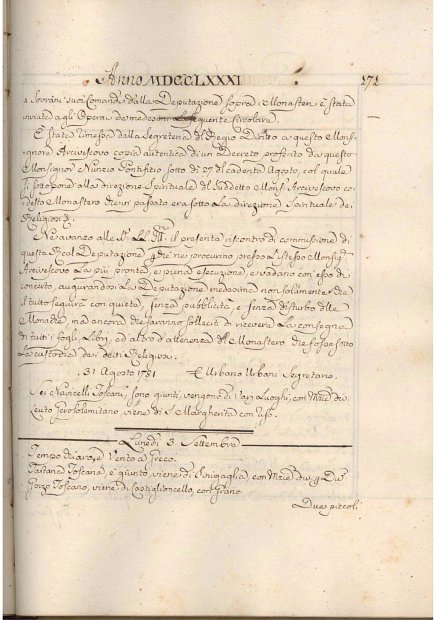 Anno MDCCLXXXI. 171
a Sovrani suoi Comandi dalla Deputazione sopra i Monasteri è stata
inviata agli Operai de medesimi la seguente circolare.
È stata rimessa dalla Segreteria di Regio Diritto a questo Monsig
nore Arcivescovo copia autentica di un Decreto proferito da questo
Monsignor Nunzio Pontificio sotto dì 27 del cadente Agosto, col quale
si sottopone alla direzione Spirituale del Suddetto Mons. Arcivescovo co
desto Monastero che in passato era sotto la direzione Spirituale dei
Religiosi
Ne avanzo alle il presente riscontro di commissione di
questa Real Deputazione procurino presso l'istesso Monsig.
Arcivescovo la più pronta, e piena esecuzione, e vadano con esso di
concerto, augurandosi la Deputazione medesima non solamente che
il tutto seguirà con quiete, senza pubblicità, e senza disturbo delle
Monache, ma ancora che saranno solleciti di ricevere la consegna
di tutti i fogli, Libri, ed altro d'attenenza del Monastero che fosse sotto
la custodia dei detti Religiosi.
31 Agosto 1781 Urbano Urbani Segretario.
Sei Navicelli Toscani, sono giunti, vengono di Luoghi, con Mercie
Leuto Gerosolimitano, viene di S. Margherita con
Lunedì 3 Settembre
Tempo chiaro, e Vento a Greco.
Tartana Toscana, è giunta, viene di Sinigaglia, con Mercie
Gozzo Toscano, viene di Castiglioncello, con Grano.
Due piccoli